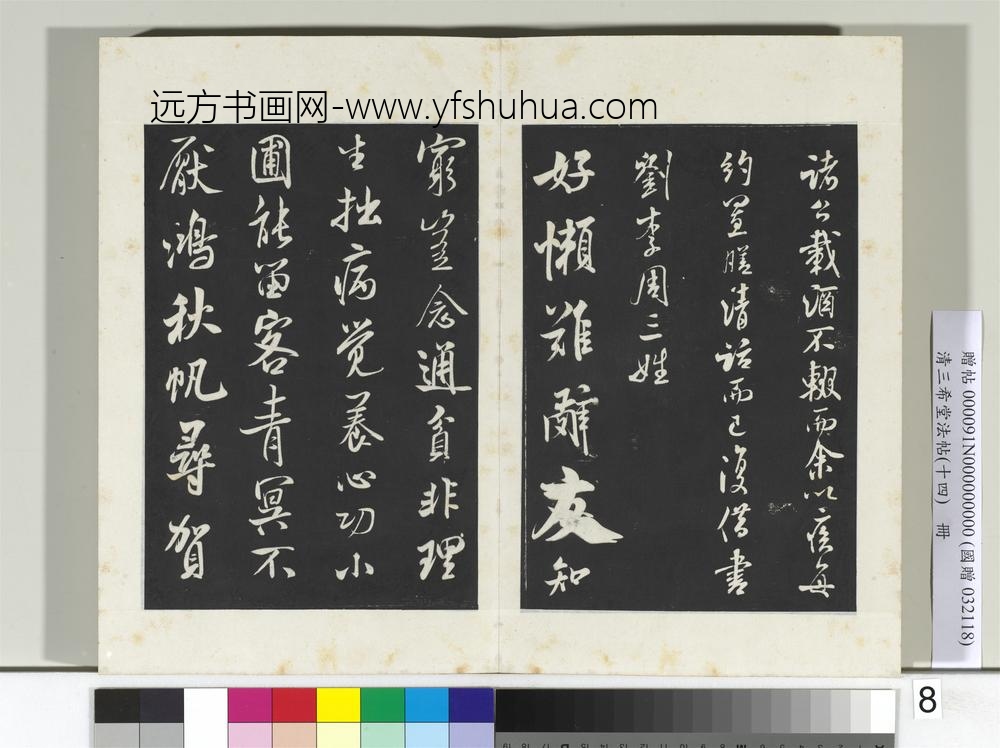 远方书画网-www.yfshuhua.com
諸公載酒不輟而余以疾每
約置膳清話而已復借書
劉李周三姓
好懶難辭友知
窮豈念通貧非理
生拙病覺養心功小
圃能留客青冥不
厭鴻秋帆尋賀
贈帖 000091N000000000 (國贈 032118)
清三希堂法帖(十四) 冊
8